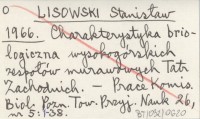 O LISOWSKI Stanisław
1966. Charakterystyka brio-
logiczna wysokogórskich
zespołów murawowych Tatr
Zachodnich. – Prace Komis.
Biol. Pozn. Tow. Przyj. Nauk 26,
nr 5: 1-38.